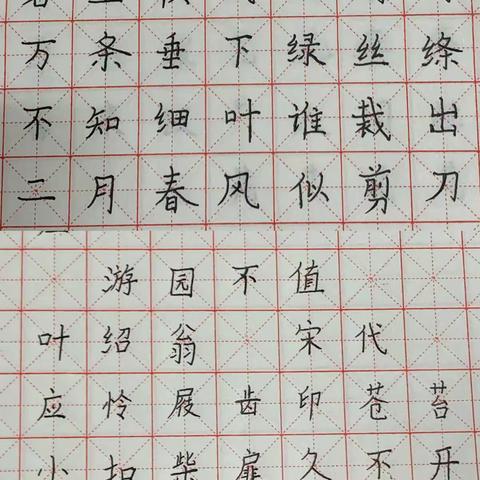 万条垂下绿丝绦
不知细叶谁裁出
二月春风似剪刀
游园不值
叶绍翁 宋代
应怜屐齿印苍苔
小扣柴扉久不开